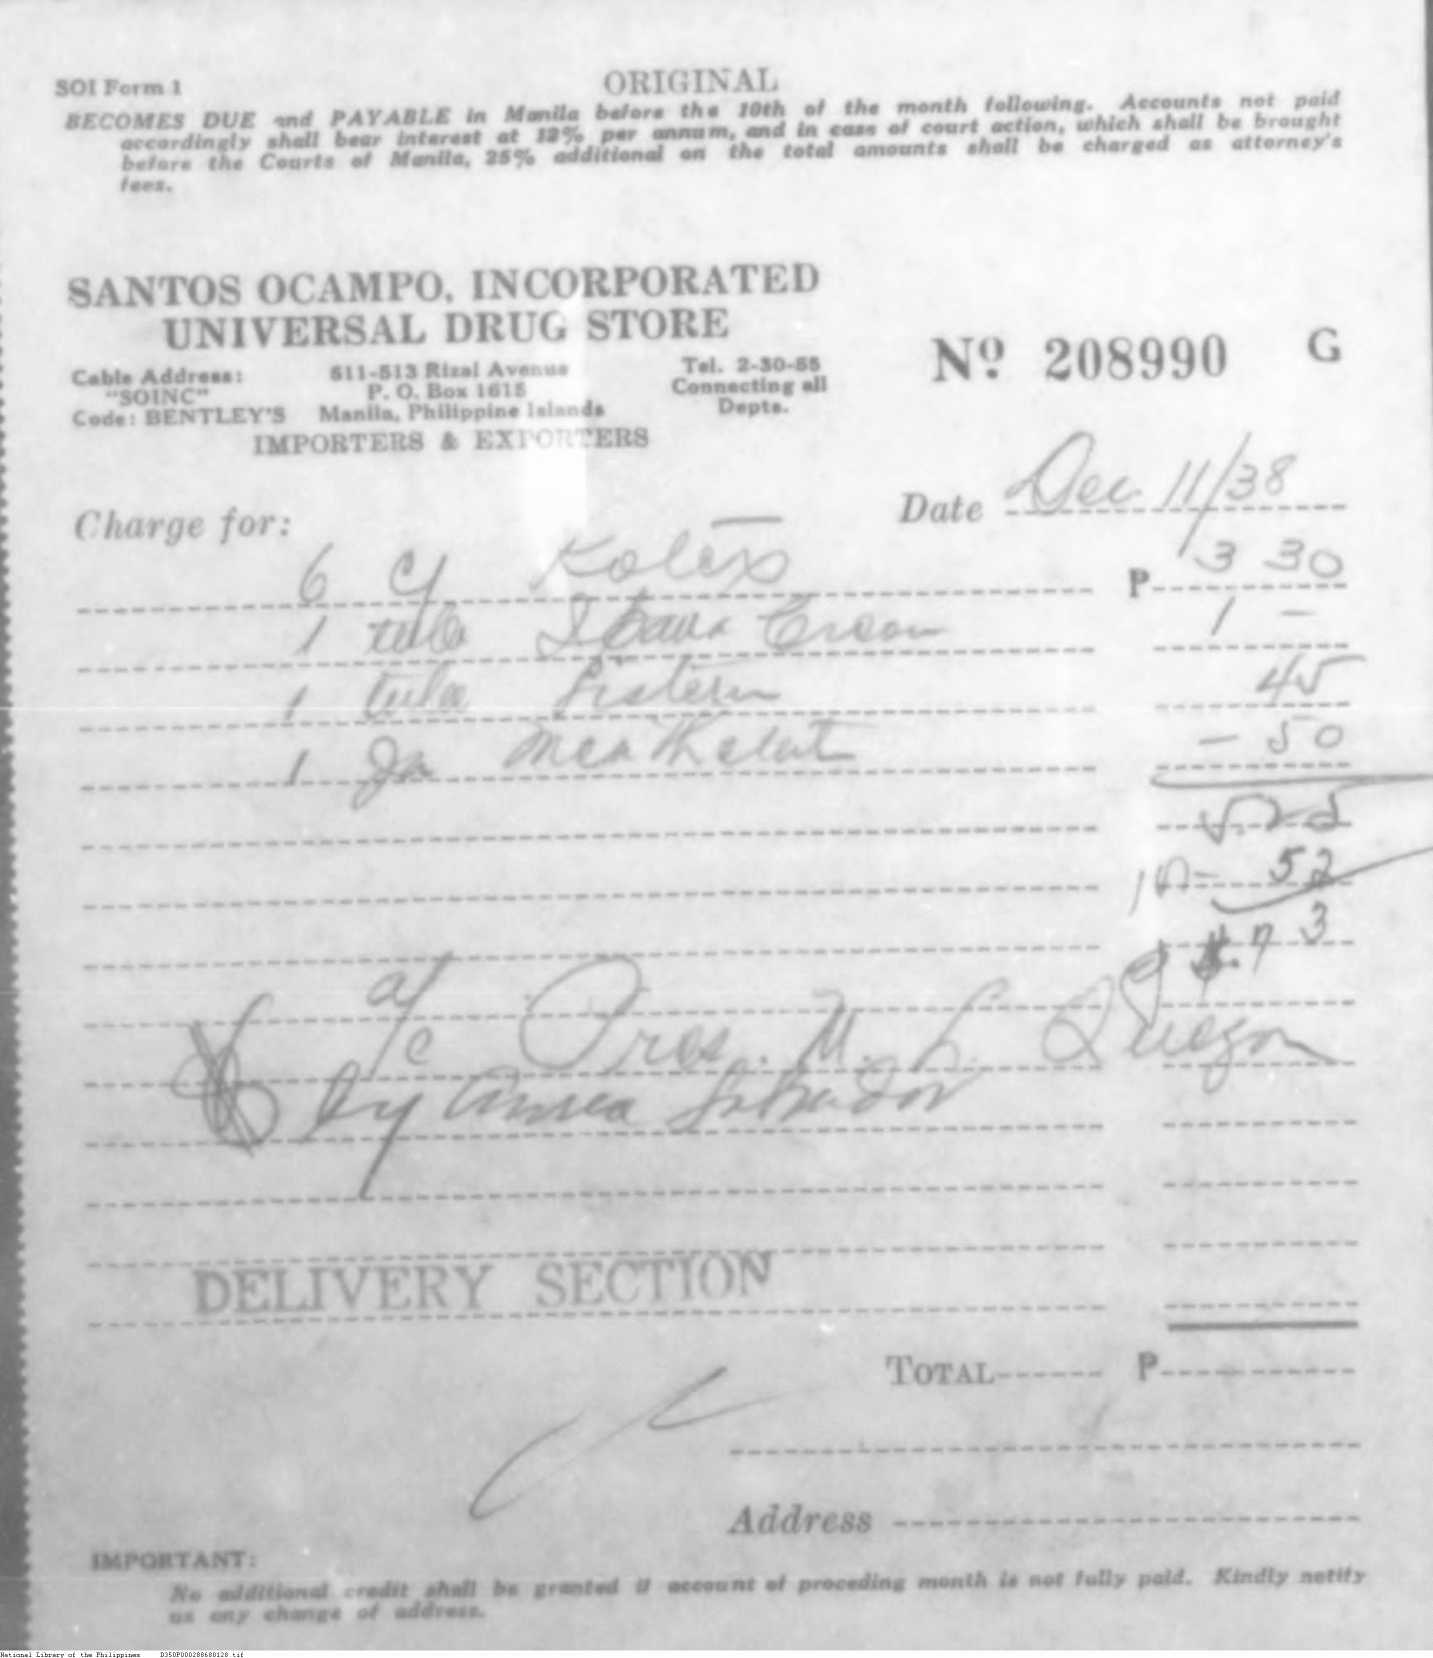 SOI Form 1
ORIGINAL
BECOMES DUE and PAYABLE in Manila before the 10th of the month following. Accounts not paid
accordingly shall bear interest at 12% per annum, and in case of court action, which shall be brought
before the Courts of Manila, 25% additional on the total amounts shall be charged as attorney's
fees.
SANTOS OCAMPO, INCORPORATED
UNIVERSAL DRUG STORE
Nº 208990 G
Cable Address: 511-513 Rizal Avenue Tel. 2-30-55
"SOINC" P. O. Box 1615 Connecting all
Code: BENTLEY'S Manila, Philippine Islands Depts.
IMPORTERS & EXPORTERS
Date Dec 11/38
Charge for:
6 Kotex P 3 30
1 tube Cream 1 -
1 tube 45
1 Ja - 50
5.25
52
4.73
a/c Pres. M. L. Quezon
by Aurea Labrador
DELIVERY SECTION
TOTAL P
Address
IMPORTANT:
No additional credit shall be granted if account of proceding month is not fully paid. Kindly notify
us any change of address.
National Library of the Philippines D350P000288680128.tif